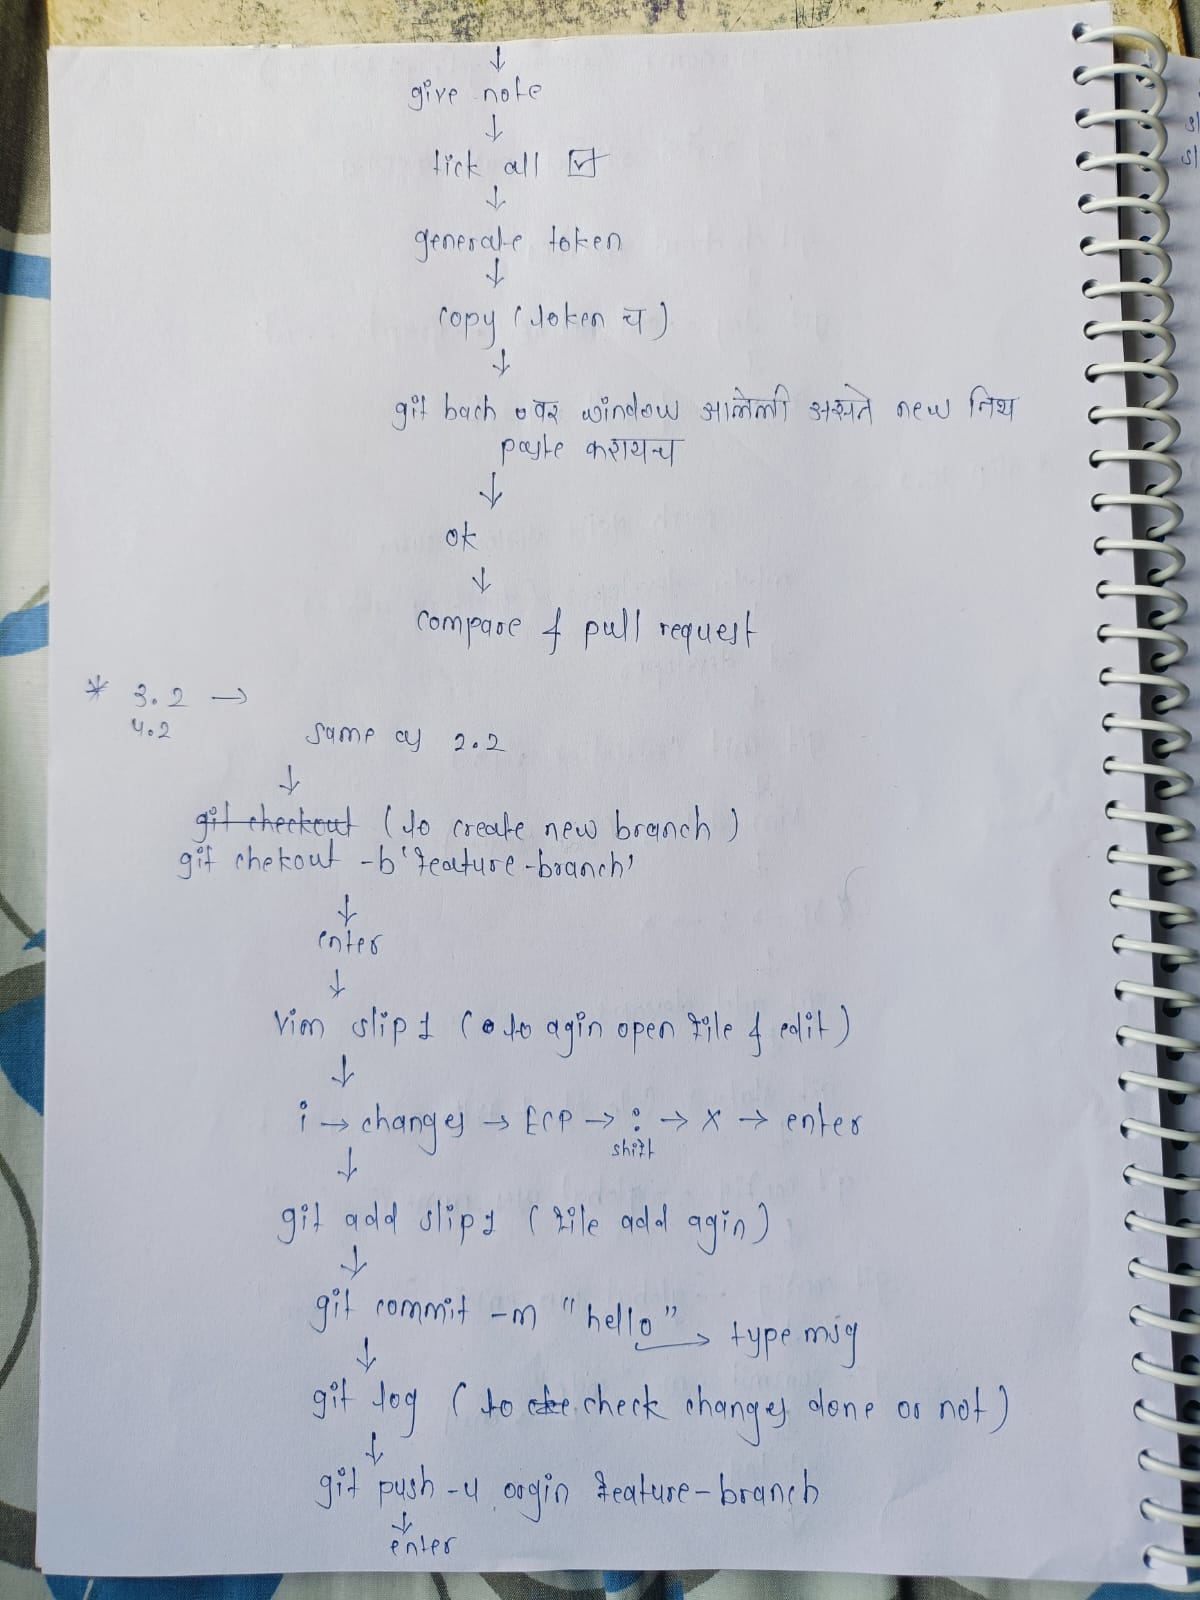 ↓
give note
↓
tick all ☑
↓
generate token
↓
copy (token च)
↓
git bach वर window आलेली असते new तिथ
paste करायच
↓
ok
↓
compare & pull request
* 3.2 →
4.2
same as 2.2
↓
git checkout (to create new branch)
git chekout -b 'feature-branch'
↓
enter
↓
vim slip1 (to agin open file & edit)
↓
i → changes → ECP → : → x → enter
shift
↓
git add slip1 (file add agin)
↓
git commit -m "hello" → type msg
↓
git log (to che check changes done or not)
↓
git push -u orgin feature-branch
↓
enter